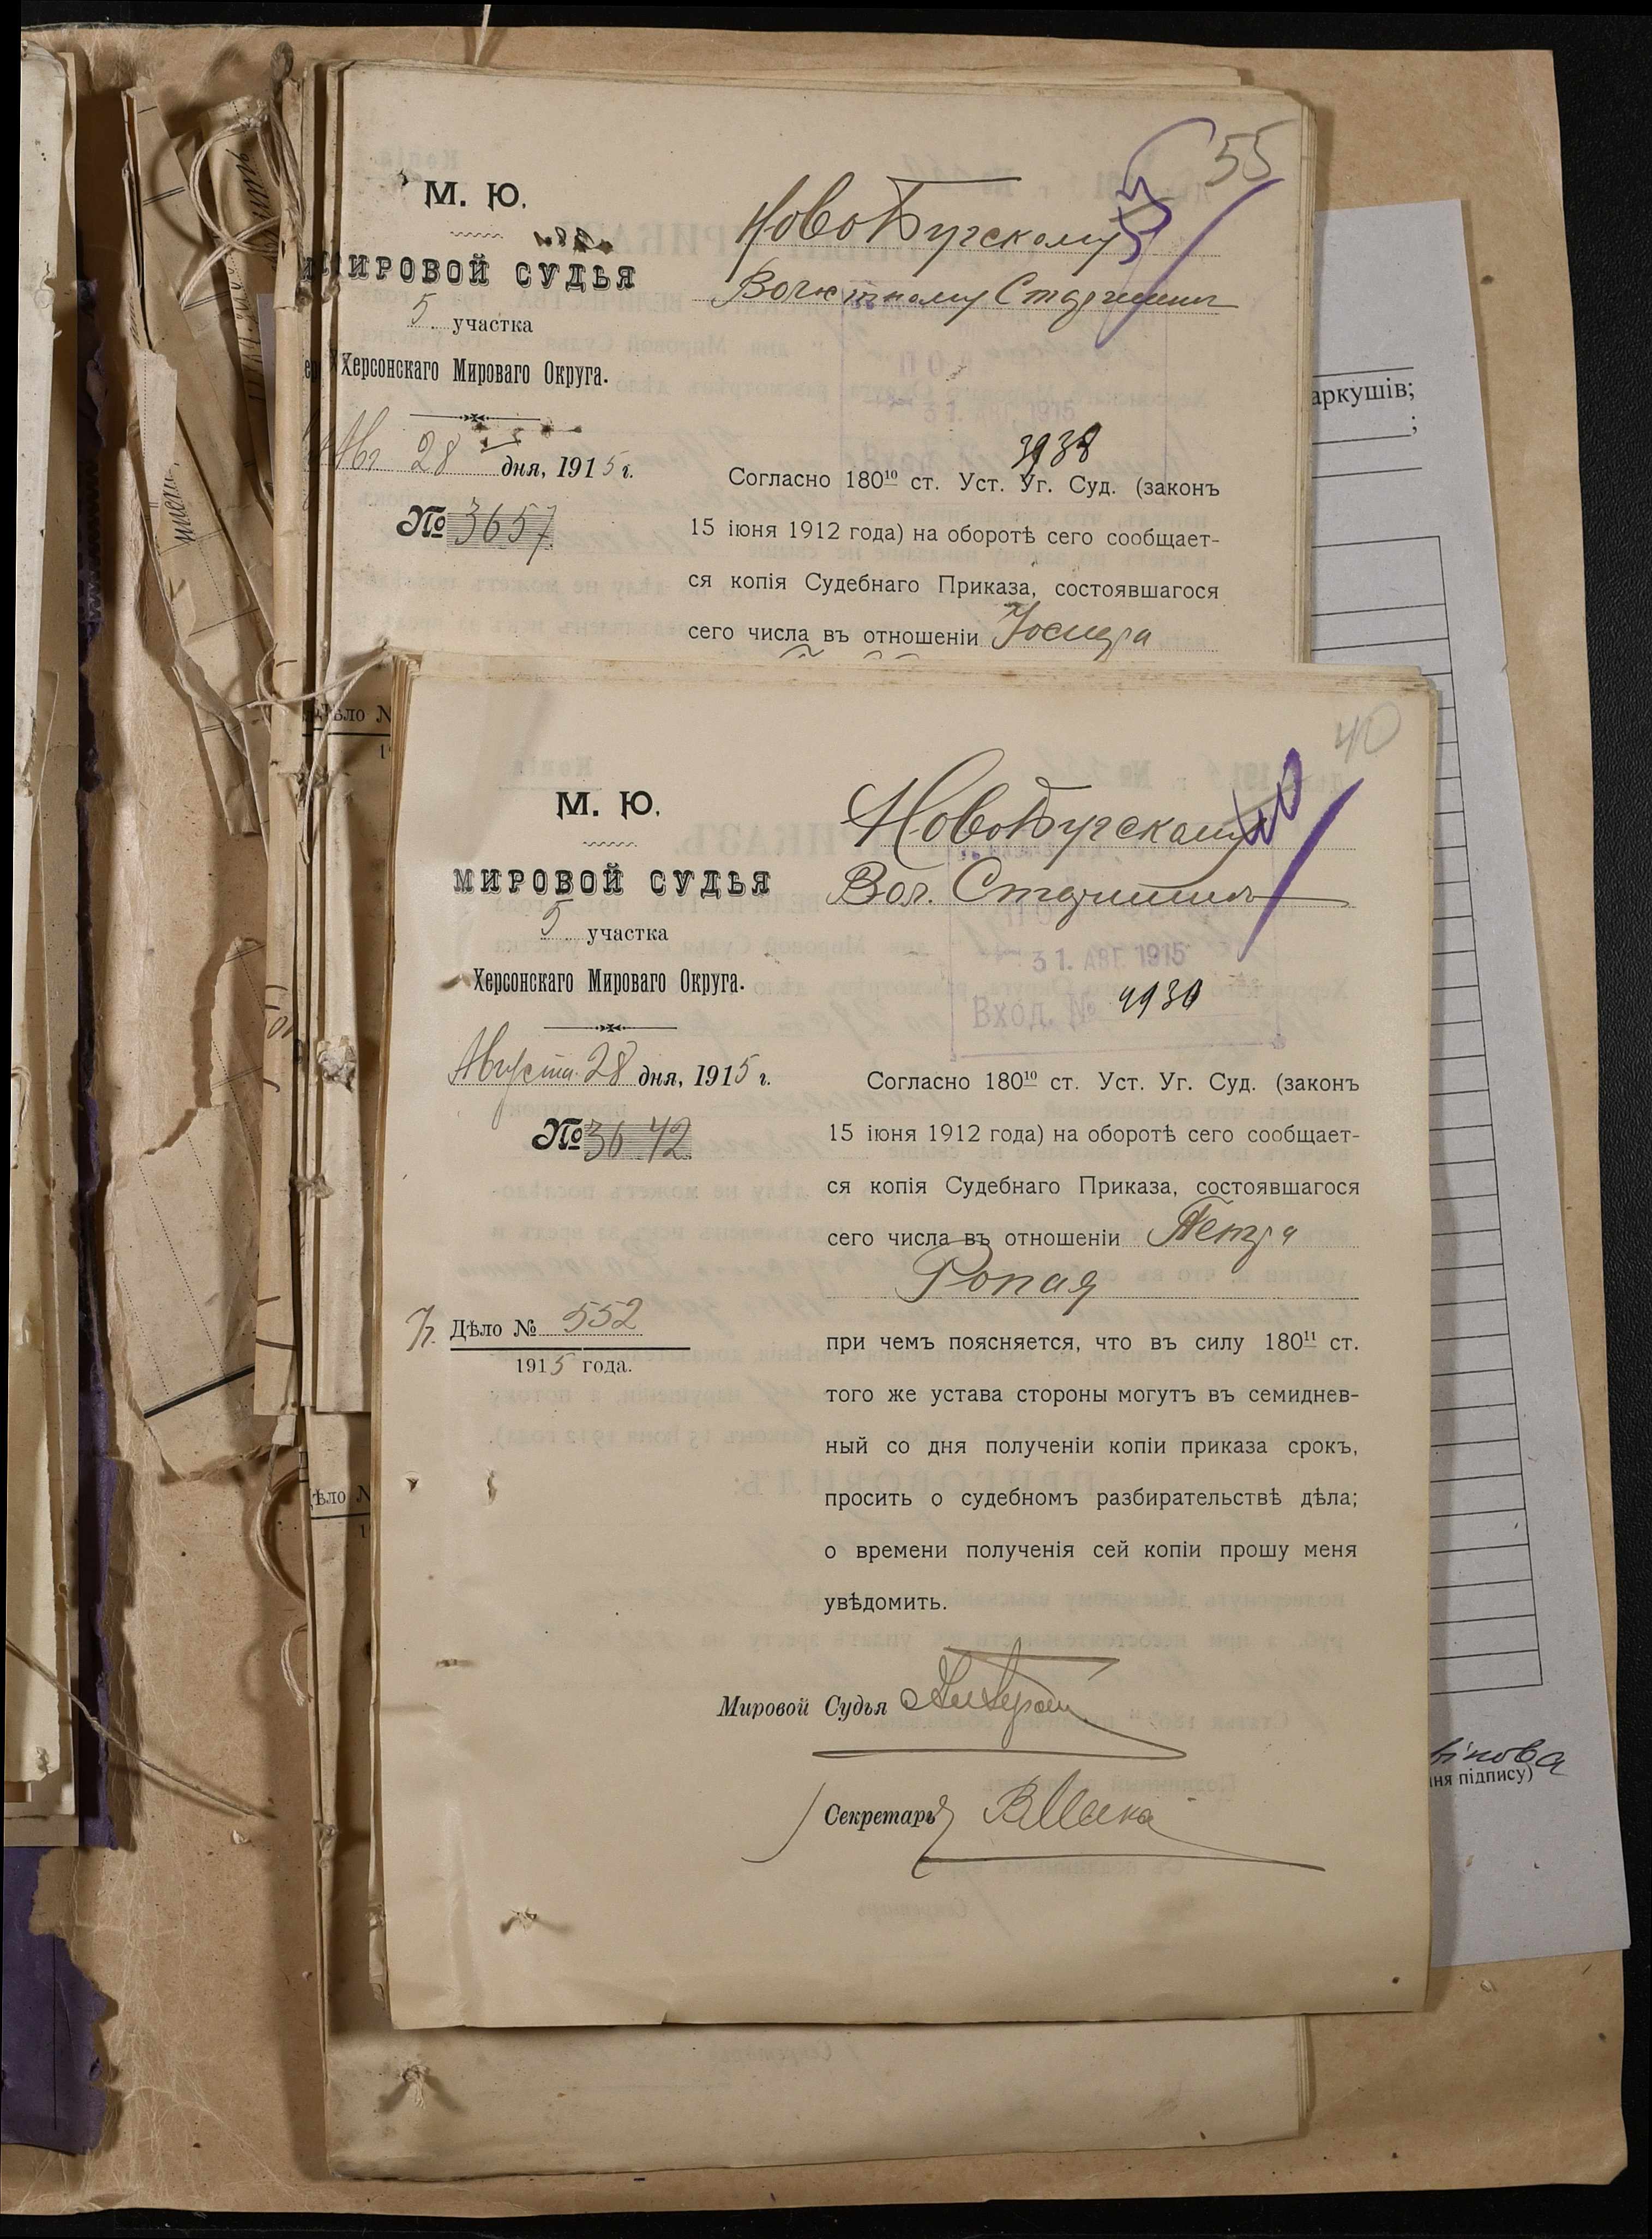 55
М. Ю.
МИРОВОЙ СУДЬЯ
5 участка
Херсонскаго Мироваго Округа.
Ав 28 дня, 1915 г.
№ 3657
НовоБугскому
Волостному Старшинѣ
31. АВГ. 1915
3938
Согласно 180¹⁰ ст. Уст. Уг. Суд. (законъ
15 іюня 1912 года) на оборотѣ сего сообщает-
ся копія Судебнаго Приказа, состоявшагося
сего числа въ отношеніи Іосифа
аркушів;
;
40
М. Ю.
МИРОВОЙ СУДЬЯ
5 участка
Херсонскаго Мироваго Округа.
Августа 28 дня, 1915 г.
№ 3642
Дѣло № 552
1915 года.
НовоБугскому
Вол. Старшинѣ
40
31. АВГ. 1915
Вход. №
Согласно 180¹⁰ ст. Уст. Уг. Суд. (законъ
15 іюня 1912 года) на оборотѣ сего сообщает-
ся копія Судебнаго Приказа, состоявшагося
сего числа въ отношеніи Петра
Ропая
при чемъ поясняется, что въ силу 180¹¹ ст.
того же устава стороны могутъ въ семиднев-
ный со дня полученіи копіи приказа срокъ,
просить о судебномъ разбирательствѣ дѣла;
о времени полученія сей копіи прошу меня
увѣдомить.
Мировой Судья
Секретарь
Дѣло №
ѣло №
ння підпису)